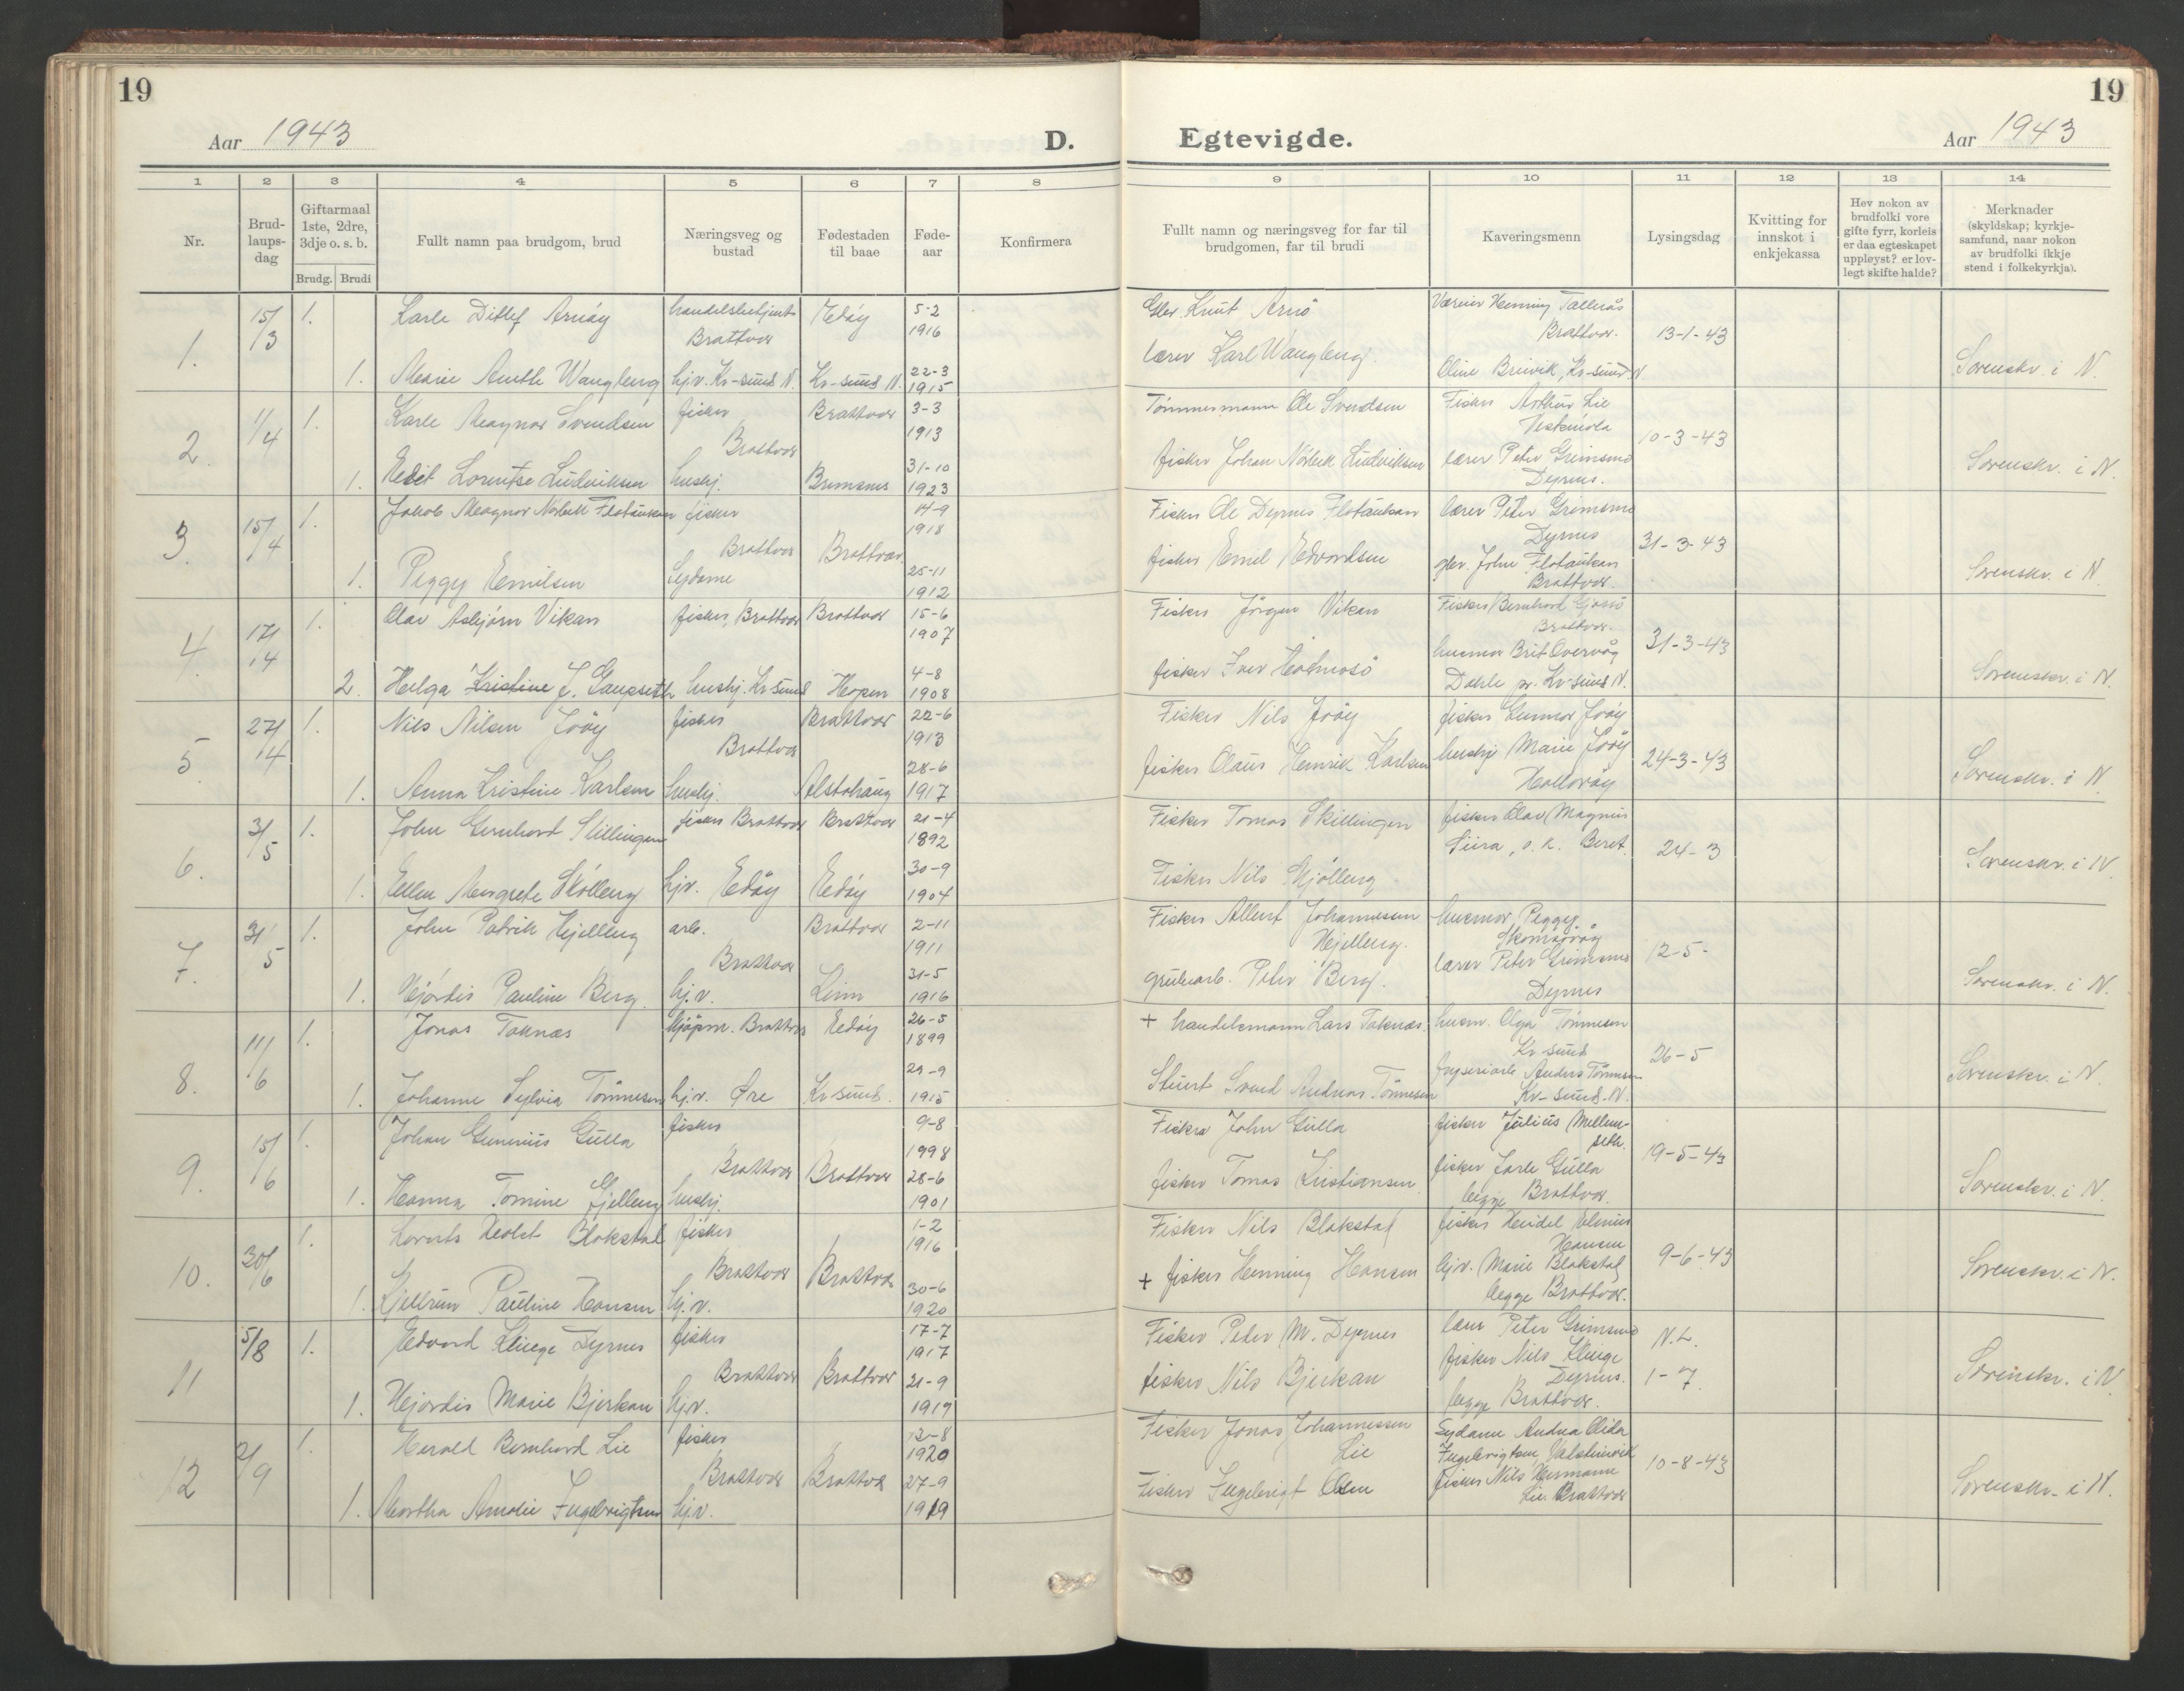 19
Aar 1943
D.
1 2 3 4 5 6 7 8
Nr.
Brud-
laups-
dag
Giftarmaal
1ste, 2dre,
3dje o. s. b.
Brudg. Brudi
Fullt namn paa brudgom, brud
Næringsveg og
bustad
Fødestaden
til baae
Føde-
aar
Konfirmera
1. 15/3 1. Karle Ditlef Arnöy Edöy 5-2
Brattvær 1916
1. Marie hjv. Kr-sund N. Kr-sund N. 22-3
1915
2. 1/4 1. Karle Magnar Svendsen fisker Brattvær 3-3
Brattvær 1913
1. Edit Lorentse Ludviksen hushj. Bremsnes 31-10
1923
3. 15/4 1. Jakob Magnar Norbek Flatauken fisker 14-9
1918
Brattvær Brattvær
1. Peggy Emilsen Sydame 25-11
1912
4. 17/4 1. Olav Asbjörn Vikan fisker, Brattvær Brattvær 15-6
1907
2. Helga Kristine J. Gaupseth hushj. Kr.sund Hopen 4-8
1908
5. 27/4 1. Nils Nilsen Jröy fisker Brattvær 22-6
Brattvær 1913
1. Anna Kristine Karlsen hushj. Alstahaug 28-6
1917
6. 3/5 1. John Gernhard Skillingen fisker Brattvær Brattvær 21-4
1892
1. Ellen Margrete Skölleng hjv. Edöy Edöy 30-9
1904
7. 31/5 1. John Patrik Hjelleng arb. Brattvær 2-11
Brattvær 1911
1. Hjördis Pauline Berg hj.v. 31-5
1916
8. 11/6 1. Jonas Taknæs kjöpm. Brattvær Edöy 26-5
1899
1. Johanne Sylvia Tönnesen hj.v. Øre Kr-sund. 29-9
1915
9. 15/6 1. Johan Gulla fisker 9-8
1998
Brattvær Brattvær
1. Hanna Tomine Gjelleng hushj. 28-6
1901
10. 30/6 1. Lorents Blakstad fisker 1-2
1916
Brattvær Brattvær
1. Kjellrun Pauline Hansen hj.v. 30-6
1920
11 5/8 1. Edvard Kluge Dyrnes fisker 17-7
1917
Brattvær Brattvær
1. Hjördis Marie Bjerkan hj.v. 21-9
1919
12 2/9 1. Harald Bernhard Lie fisker 12-8
1920
Brattvær Brattvær
1. Martha Amalie Ingebrigtsen hj.v. 27-9
1919
19
Egtevigde.
Aar 1943
9 10 11 12 13 14
Fullt namn og næringsveg for far til
brudgomen, far til brudi
Kaveringsmenn
Lysingsdag
Kvitting for
innskot i
enkjekassa
Hev nokon av
brudfolki vore
gifte fyrr, korleis
er daa egteskapet
uppløyst? er lov-
legt skifte halde?
Merknader
(skyldskap; kyrkje-
samfund, naar nokon
av brudfolki ikkje
stend i folkekyrkja).
Gbr. Knut Arnö Henning Tallerås
Brattvær. 13-1-43
lærer Karl Wangberg. Oline Breivik, Kr-sund N. Sorenskr. i N.
Tömmermann Ole Svendsen Fisker Arthur Lie
10-3-43
fisker Johan Norbek Ludviksen lærer Peter Grimsmo
Dyrnes. Sorenskr. i N.
Fisker Ole Dyrnes Flatauken lærer Peter Grimsmo
Dyrnes 31-3-43
fisker Emil Edvardsen gbr. John Flatauken
Brattvær. Sorenskr. i N.
Fisker Jörgen Vikan Fisker Bernhard
Brattvær. 31-3-43
fisker Iver Holmosö husmor Brit Oververåg
Dahle pr. Kr.sund N. Sorenskr. i N.
Fisker Nils Jröy fisker Gunnar Jröy
24-3-43
fisker Olaus Henrik Karlsen hushj. Marie Jröy
Hallaröy Sorenskr. i N.
Fisker Tomas Skillingen fisker Olav Magnus
24-3
Fisker Nils Skjölleng Sorenskr. i N.
Fisker Albert Johannessen husmor Peggy
Hjelleng. Skomsövåg 12-5-
grubearb. Peter Berg. lærer Peter Grimsmo
Dyrnes Sorenskr. i N.
+ handelsmann Lars Taknæs. husm. Olga Tönnesen
Kr-sund 26-5
Svend Andreas Tönnesen fryseriarb. Anders Tönnesen
Kr-sund. N. Sorenskr. i N.
Fisker John Gulla fisker Julius Mellem-
seth. 19-5-43
fisker Tomas Kristiansen fisker Jarle Gulla
begge Brattvær. Sorenskr. i N.
Fisker Nils Blakstad fisker Hansen
9-6-43
+ fisker Henning Hansen hjv. Marie Blakstad
begge Brattvær. Sorenskr. i N.
Fisker Peter M. Dyrnes lærer Peter Grimsmo N.L.
fisker Nils Bjerkan fisker Nils Kluge
Dyrnes. 1-7
begge Brattvær. Sorenskr. i N.
Fisker Jonas Johannessen Sydame Andrea Alida
Lie Ingebrigtsen, 10-8-43
Fisker Ingebrigt Olsen fisker Nils Hermann
Lie. Brattvær Sorenskr. i N.